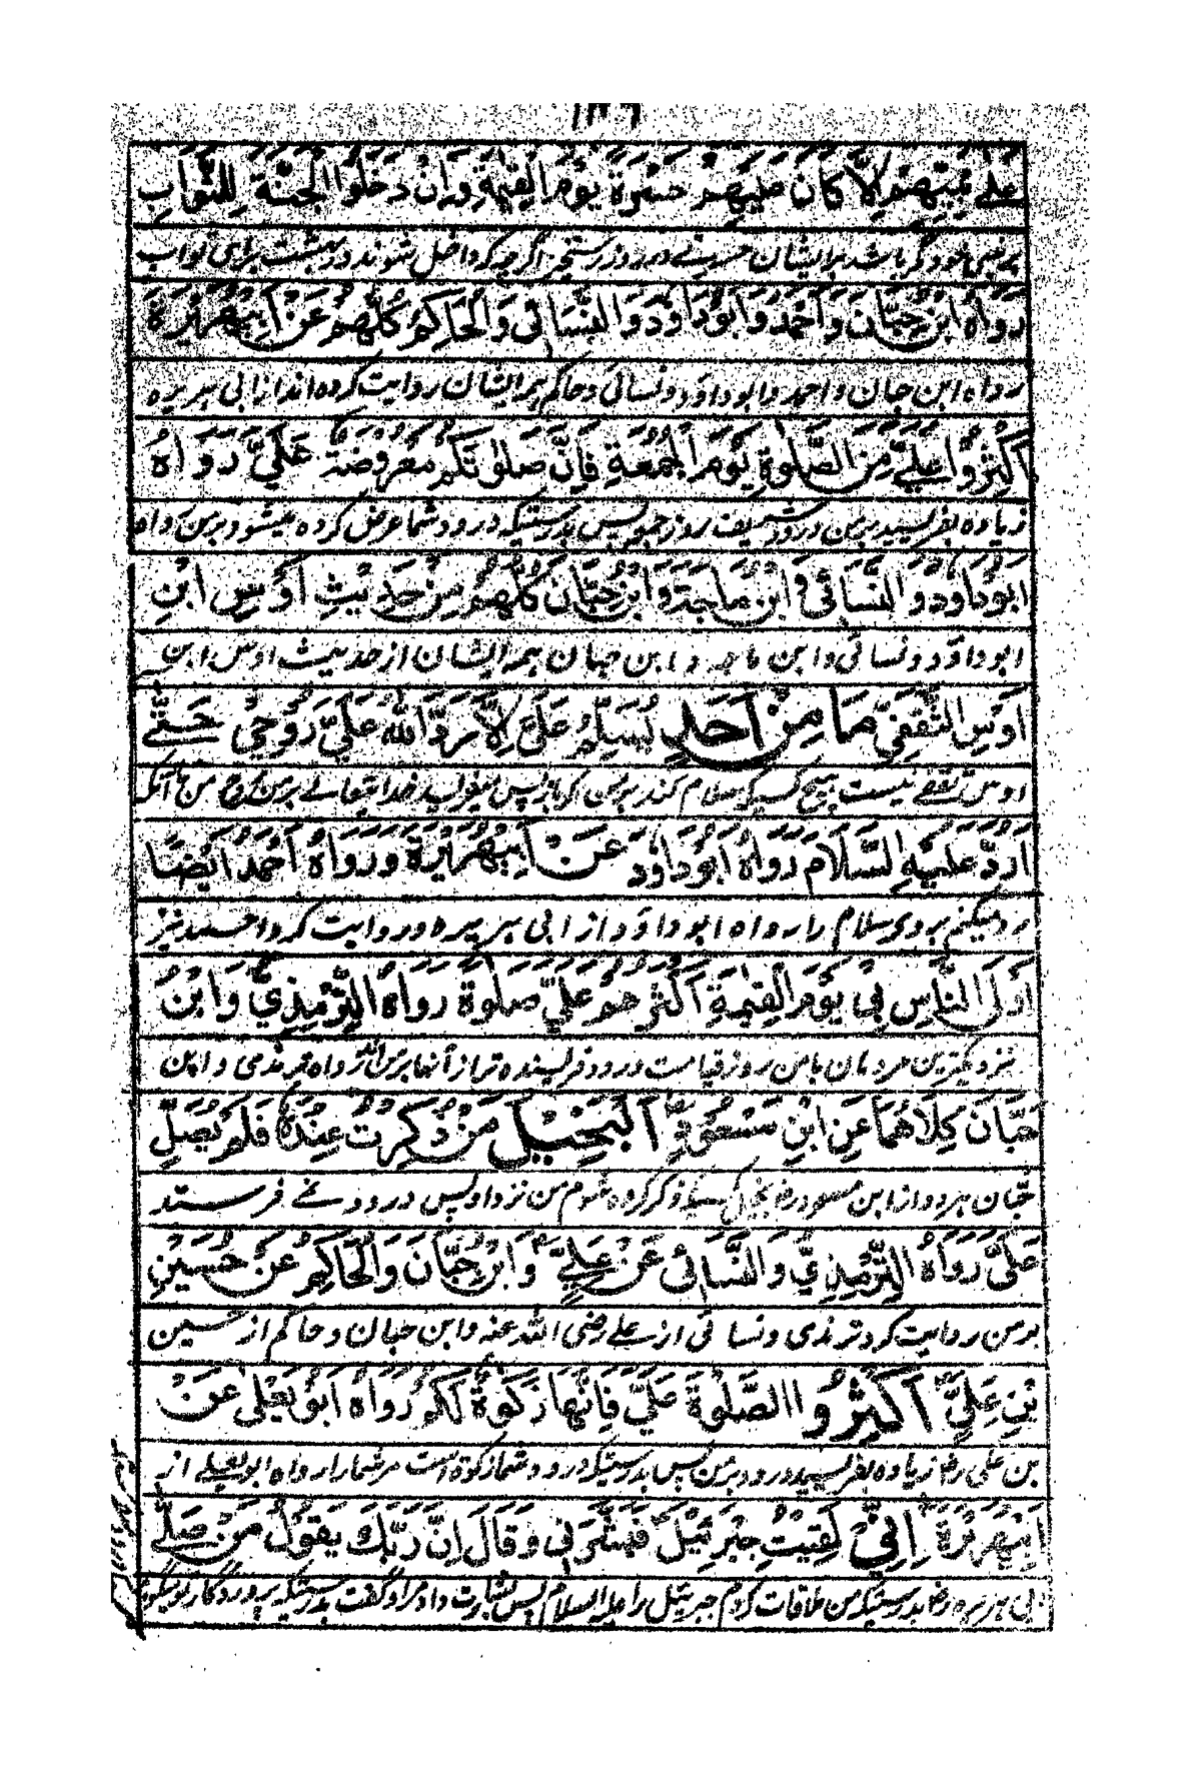 عَلٰى نَبِيِّهِمْ اِلَّا كَانَ عَلَيْهِمْ حَسْرَةً يَوْمَ الْقِيٰمَةِ وَاِنْ دَخَلُوا الْجَنَّةَ لِلثَّوَابِ
بر نبی خود مگر باشد بر ایشان حسرتے در روز رستخیز اگرچه که داخل شوند در بهشت برای ثواب
رَوَاهُ ابْنُ حِبَّانَ وَاَحْمَدُ وَاَبُوْدَاوٗدَ وَالنَّسَائِی وَالْحَاكِمُ كُلُّهُمْ عَنْ اَبِيْهُرَيْرَةَ
رواه ابن حبان واحمد وابوداؤد ونسائی وحاکم همه ایشان روایت کرده اند از ابی هریره
اَكْثِرُوْا عَلَيَّ مِنَ الصَّلٰوةِ يَوْمَ الْجُمُعَةِ فَاِنَّ صَلٰوتَكُمْ مَعْرُوْضَةٌ عَلَيَّ رَوَاهُ
زیاده بفرستید بر من درود شریف روز جمعه پس بدرستیکه درود شما عرض کرده میشود بر من رواه
اَبُوْدَاوٗدَ وَالنَّسَائِی وَابْنُ مَاجَةَ وَابْنُ حِبَّانَ كُلُّهُمْ مِنْ حَدِيْثِ اَوْسِ ابْنِ
ابوداؤد ونسائی وابن ماجه وابن حبان همه ایشان از حدیث اوس ابن
اَوْسِ الثَّقَفِيِّ مَا مِنْ اَحَدٍ يُسَلِّمُ عَلَيَّ اِلَّا رَدَّ اللّٰهُ عَلَيَّ رُوْحِيْ حَتّٰى
اوس ثقفے نیست هیچ کسیکه سلام کند بر من مگر باز پس میفرستد خدا تعالے بر من روح من تا آنکه
اَرُدَّ عَلَيْهِ السَّلَامَ رَوَاهُ اَبُوْدَاوٗدَ عَنْ اَبِيْهُرَيْرَةَ وَرَوَاهُ اَحْمَدُ اَيْضًا
رد میکنم بر وی سلام را رواه ابوداؤد از ابی هریره وروایت کرد احمد نیز
اَوْلَى النَّاسِ بِیْ يَوْمَ الْقِيٰمَةِ اَكْثَرُهُمْ عَلَيَّ صَلٰوةً رَوَاهُ التِّرْمِذِيُّ وَابْنُ
نزدیکترین مردمان با من روز قیامت درود فرستنده تر از آنها بر من رواه ترمذی وابن
حِبَّانَ كِلَاهُمَا عَنِ ابْنِ مَسْعُوْدٍ اَلْبَخِيْلُ مَنْ ذُكِرْتُ عِنْدَهُ فَلَمْ يُصَلِّ
حبّان هردو از ابن مسعود رض بخیل کسیکه ذکر کرده شوم من نزد او پس درود نے فرستد
عَلَيَّ رَوَاهُ التِّرْمِذِيُّ وَالنَّسَائی عَنْ عَلِيٍّ وَابْنُ حِبَّانَ وَالْحَاكِمُ عَنْ حُسَيْنِ
بر من روایت کرد ترمذی ونسائی از علے رضی الله عنه وابن حبان وحاکم از حسین
بْنِ عَلِيٍّ اَكْثِرُوا الصَّلٰوةَ عَلَيَّ فَاِنَّهَا زَكٰوةٌ لَكُمْ رَوَاهُ اَبُوْ يَعْلٰى عَنْ
بن علی رض زیاده بفرستید درود بر من پس بدرستیکه درود شما زکوة است مر شما را رواه ابو یعلے از
اَبِيْهُرَيْرَةَ اِنِّيْ لَقِيْتُ جِبْرَئِيْلَ فَبَشَّرَنِی وَقَالَ اِنَّ رَبَّكَ يَقُوْلُ مَنْ صَلّٰى
بی هریره رض بدرستیکه من ملاقات کردم جبرئیل را علیه السلام پس بشارت داد مرا وگفت بدرستیکه پروردگار تو میگوید